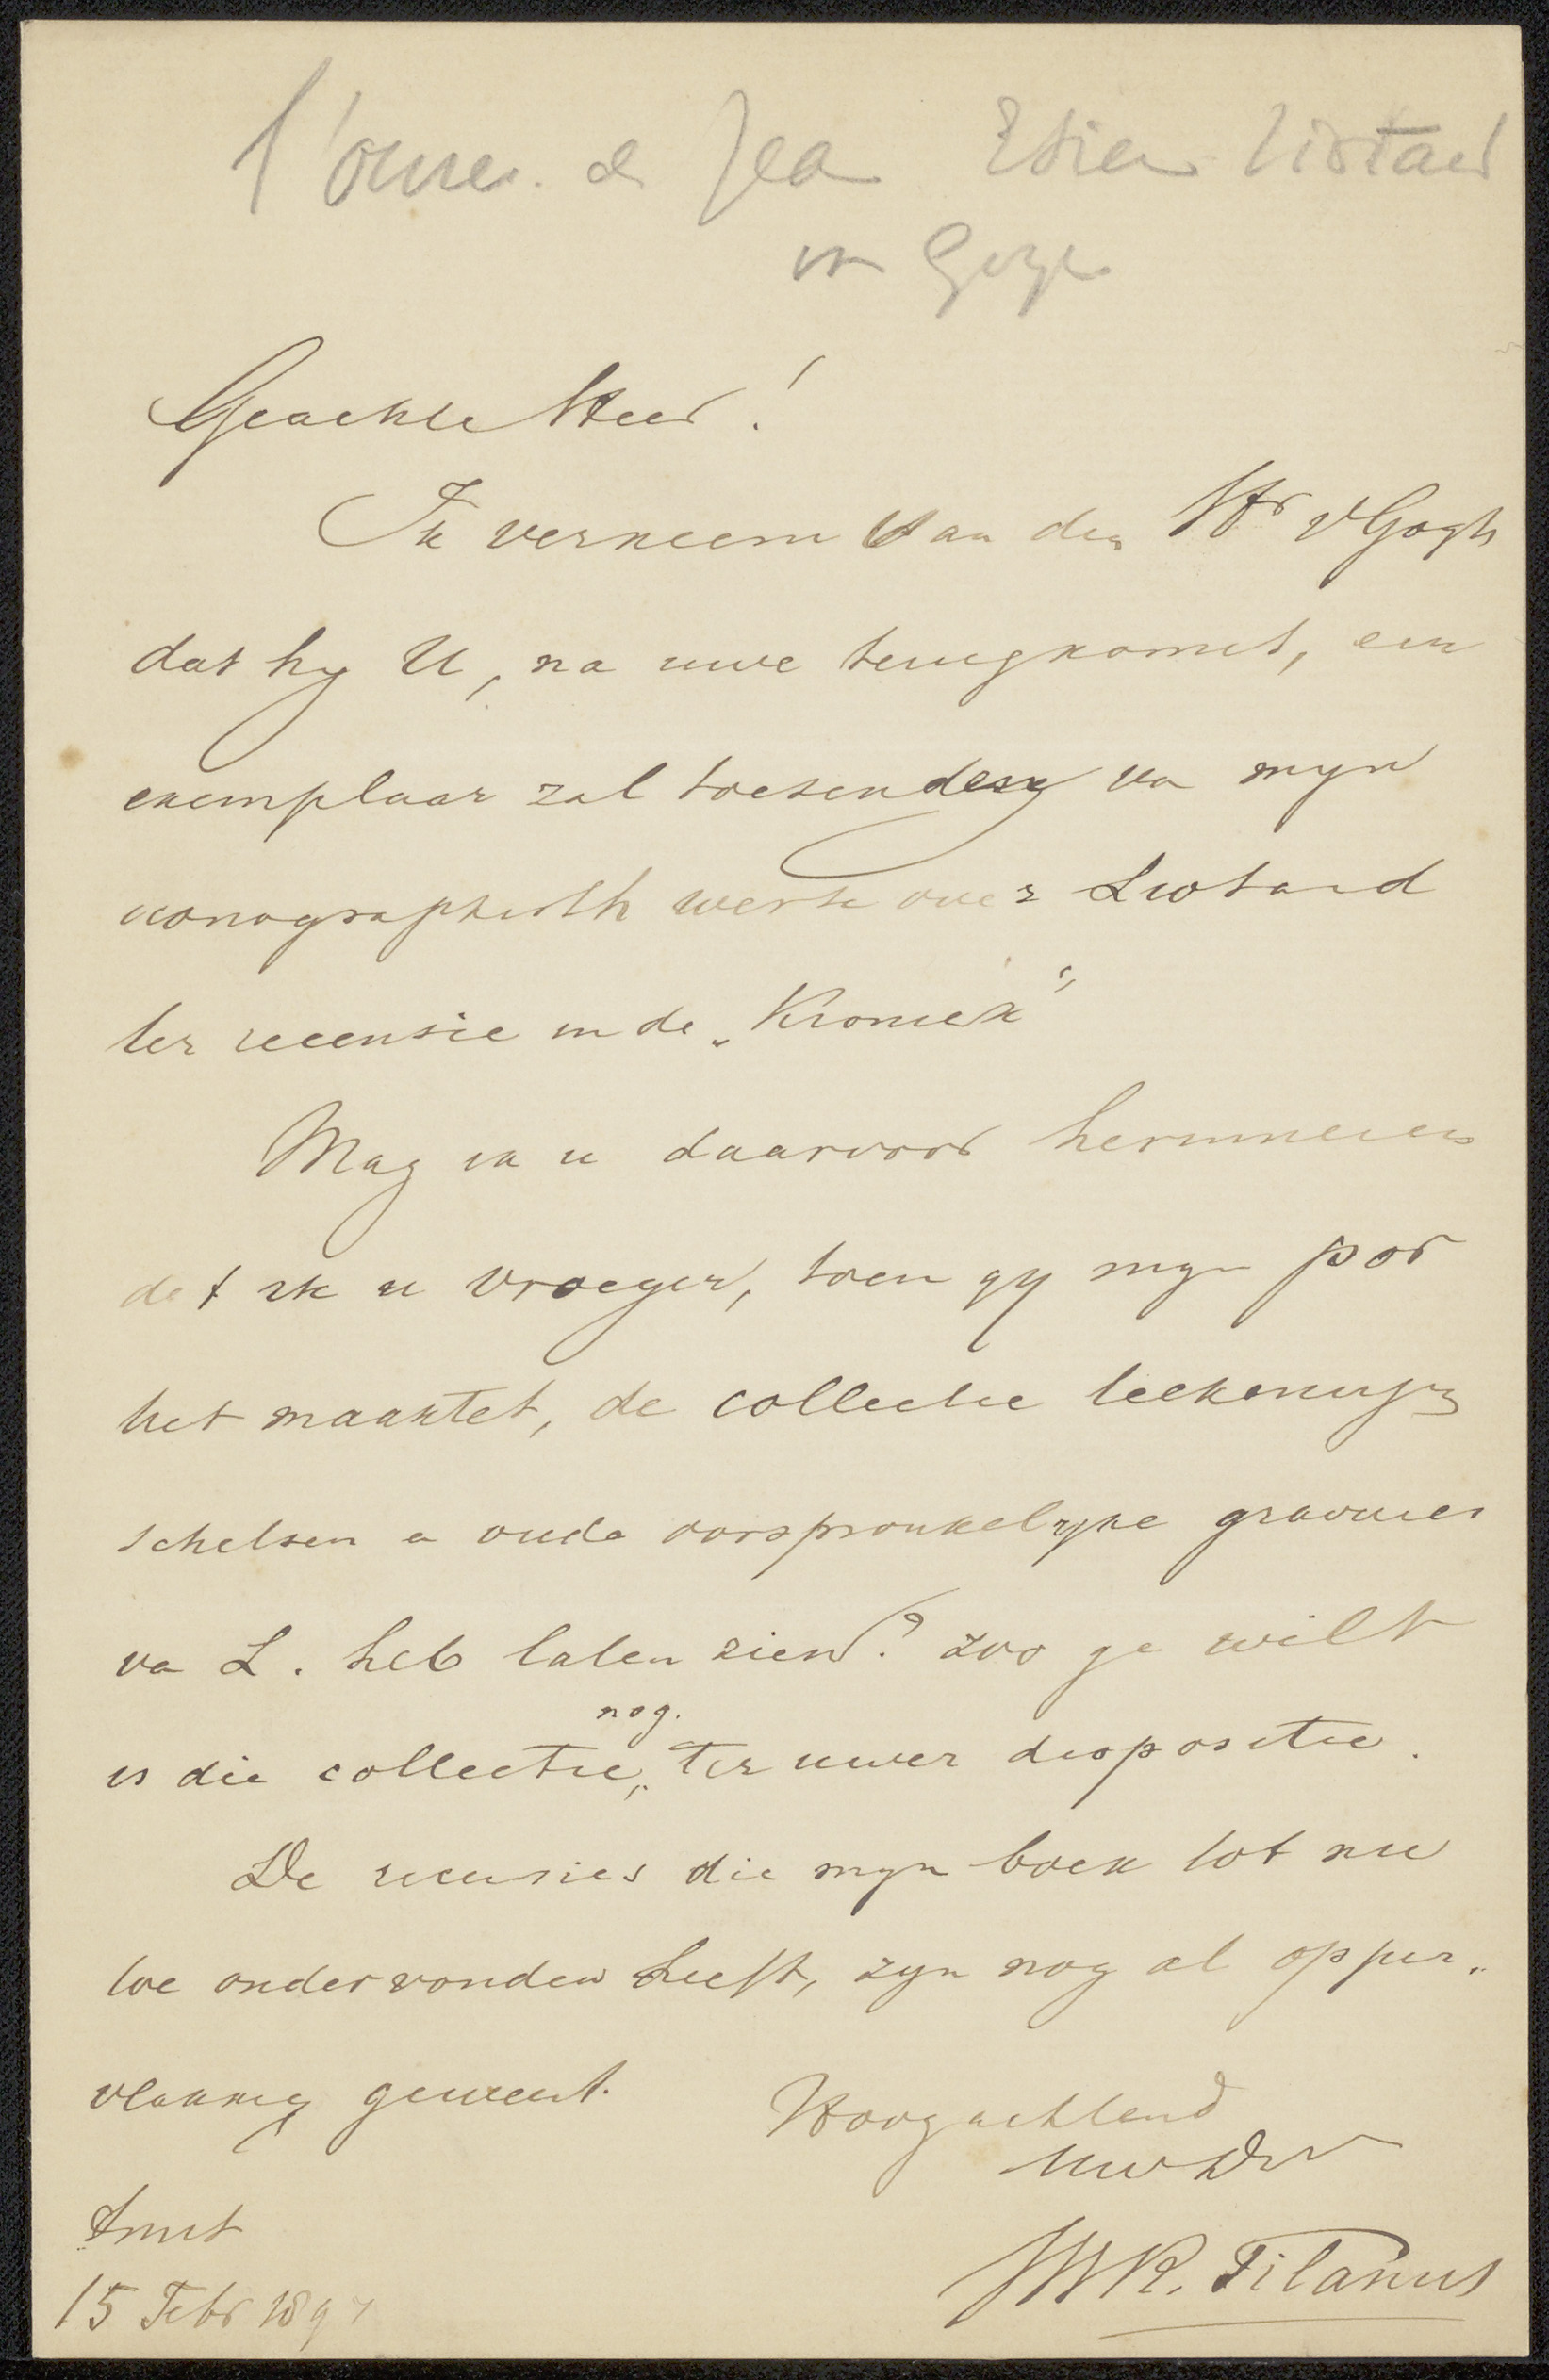 l'œuvre de Jean Etien Liotard
v Goyen
Geachte Heer!
Ik verneem van den Hr v Gogh
dat hy U, na uwe terugkomst, een
exemplaar zal toesenden van myn
iconographisch werk over Liotard
ter recensie in de „Kroniek”
Mag ik u daarvoor herinneren
dat ik u vroeger, toen gy myn por
tret maaktet, de collectie teekeningen
schetsen en oude oorspronkelyke gravures
van L. heb laten zien? Zoo ge wilt
is die collectie nog ter uwer dispositie.
De recensies die myn boek tot nu
toe ondervonden heeft, zyn nog al opper„
vlakkig geweest.
Hoogachtend
Uw Dr
JWR. Tilanus
Amst
15 Febr 1897